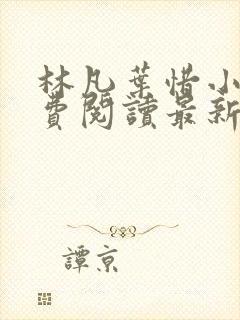 林凡葉惜小
費閱讀最新
譚京